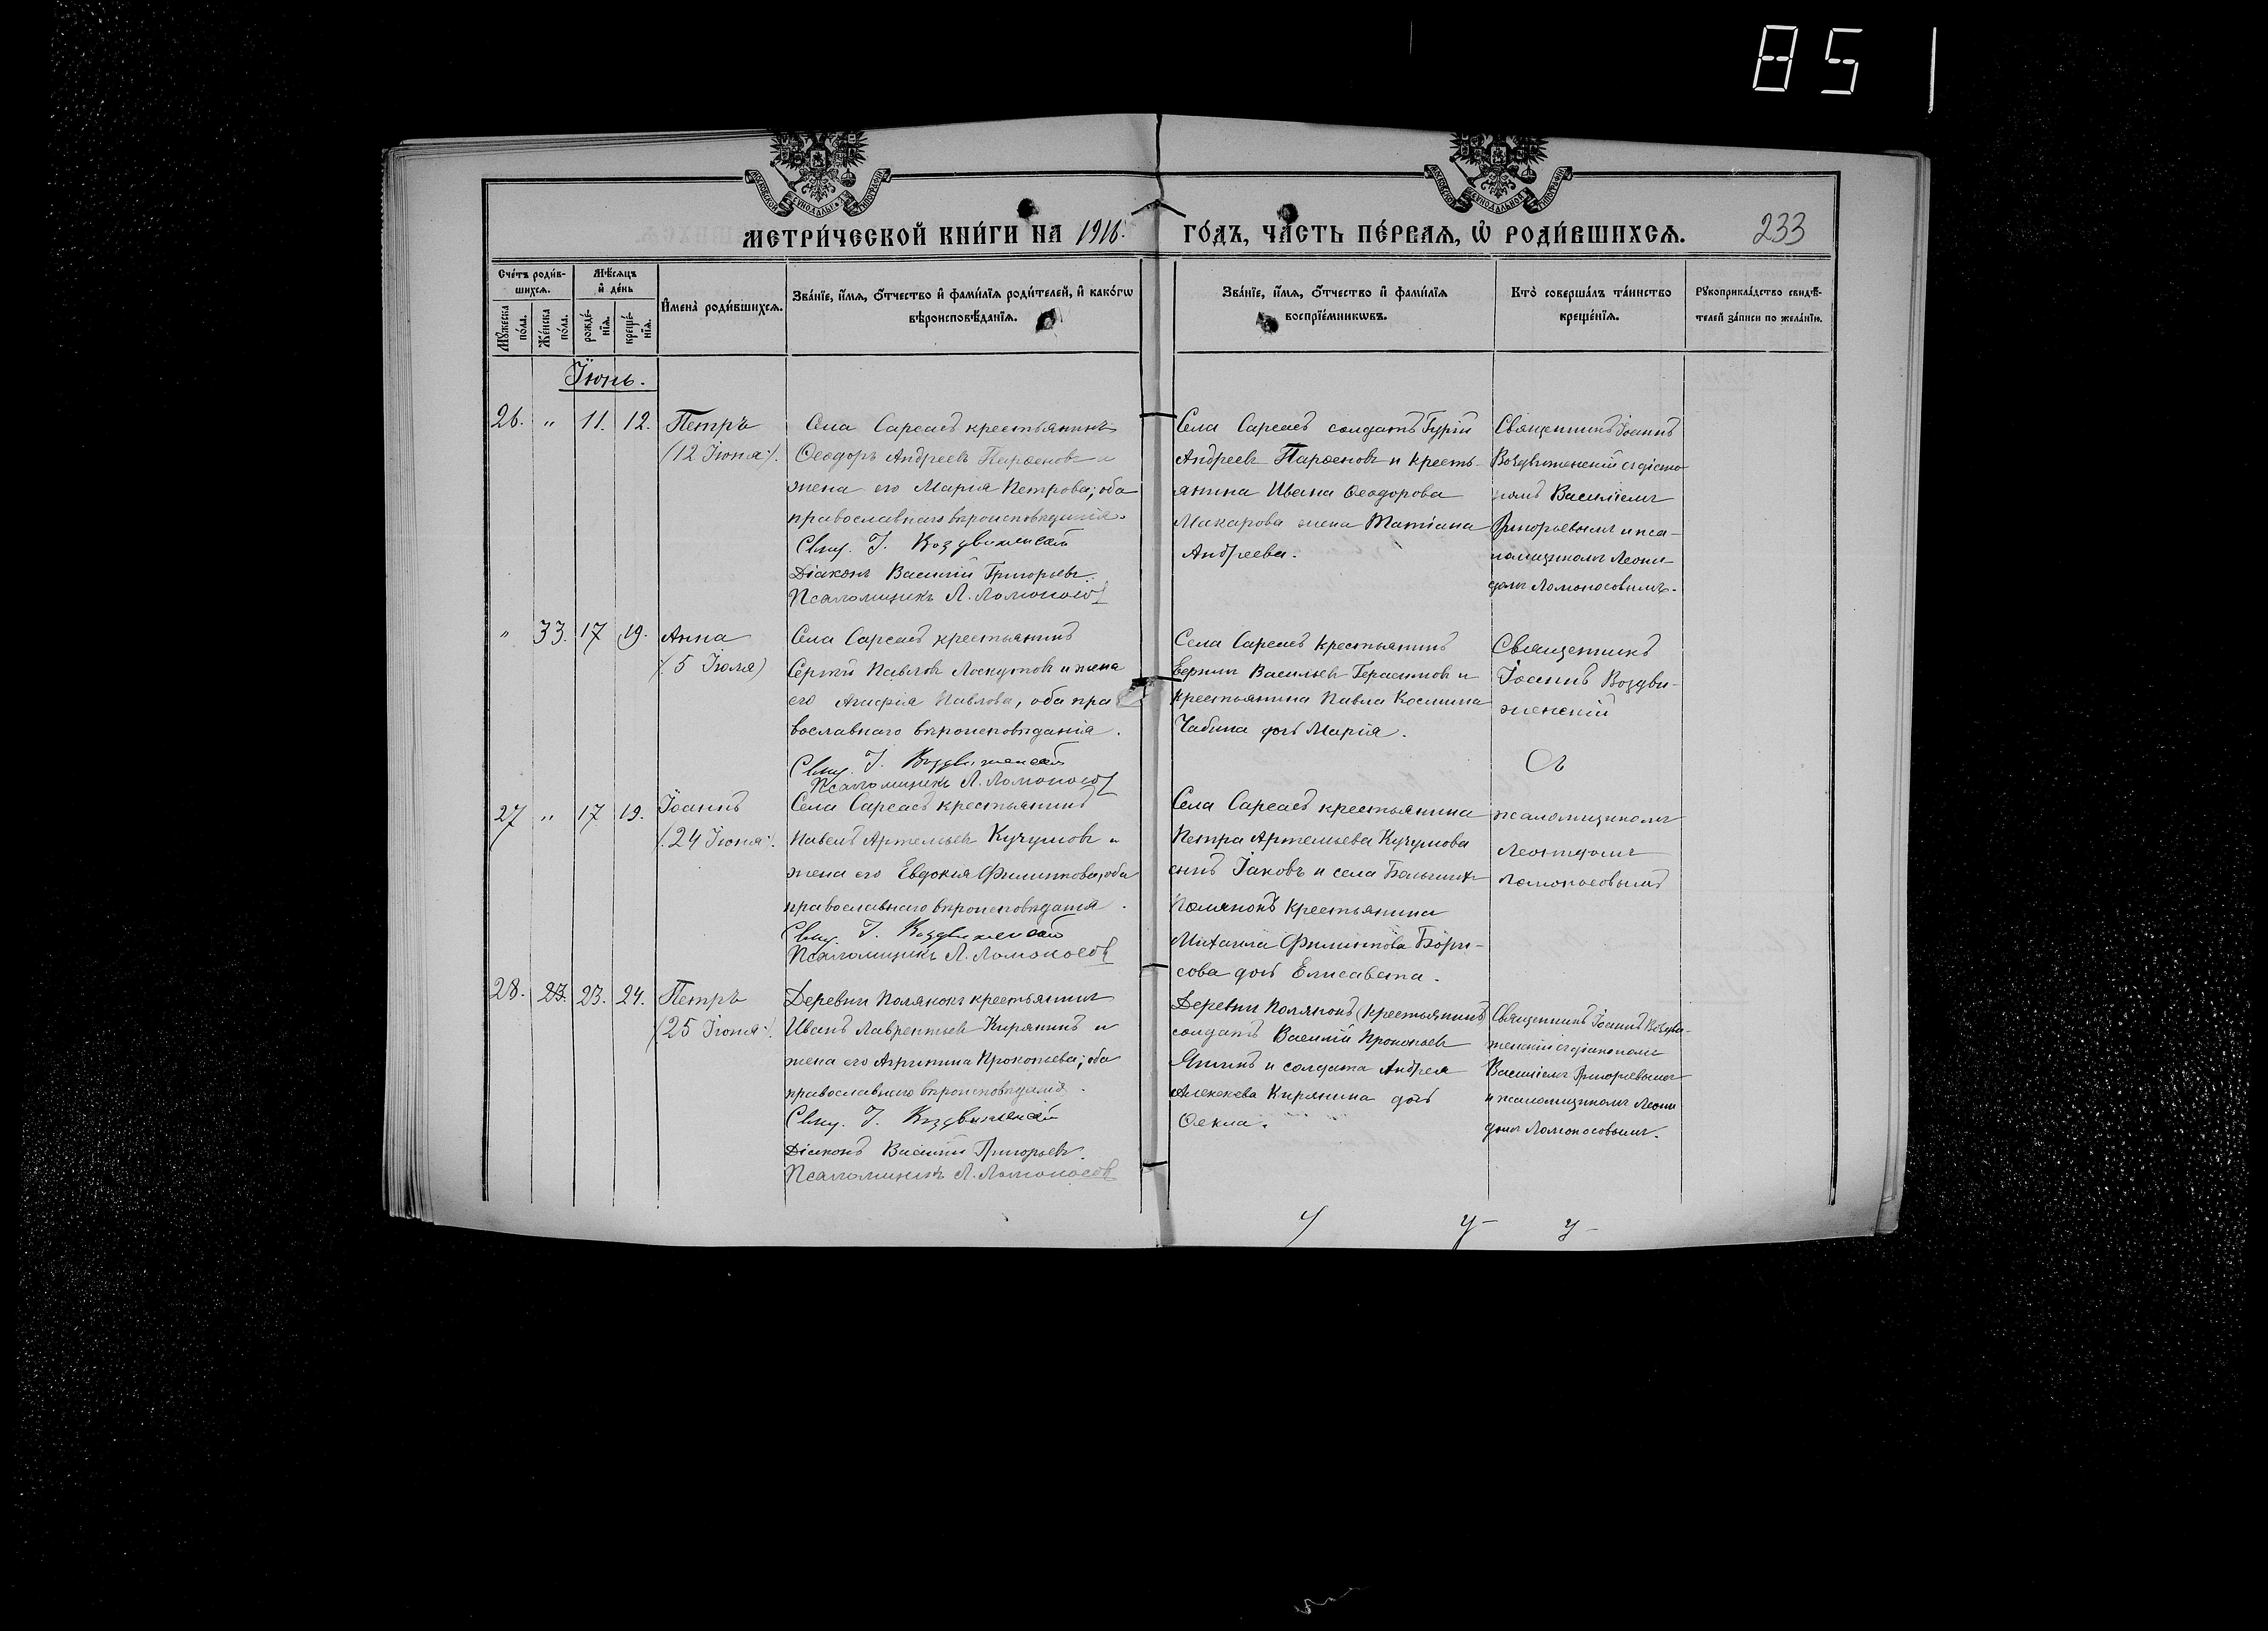 851
МОСКОВСКОЙ СѴНОДАЛЬНОЙ ТИПОГРАФІИ
МОСКОВСКОЙ СѴНОДАЛЬНОЙ ТИПОГРАФІИ
МЕТРИ́ЧЕСКОЙ КНИ́ГИ НА 1916. ГО́ДЪ, ЧА́СТЬ ПЕ́РВАЯ, Ѡ РОДИ́ВШИХСЯ. 233
Сче́тъ роди́в-
шихсѧ.
Мꙋ́жеска по́ла.
Же́нска по́ла.
Мѣ́сѧцъ
и҆ де́нь
рожде́-
нїѧ.
креще́-
нїѧ.
И҆мена̀ роди́вшихсѧ.
Зва́нїе, и҆́мѧ, ѻ҆́тчество и҆ фамилїѧ роди́телей, и҆ како́гѡ
вѣроисповѣ́данїѧ.
Зва́нїе, и҆́мѧ, ѻ҆́тчество и҆ фами́лїѧ
воспрїе́мникѡвъ.
Кто̀ соверша́лъ та́инство
креще́нїѧ.
Рꙋкоприкла́дство свидѣ́-
телей за́писи по жела́нїю.
Іюнь.
26. " 11. 12. Петръ
(12 Іюня).
Села Сарсасъ крестьянинъ
Ѳеодоръ Андреевъ Парѳеновъ и
жена его Марія Петрова; оба
православнаго вѣроисповѣданія.
Свщ. І. Воздвиженскій
Діаконъ Василій Григорьевъ.
Псаломщикъ Л. Ломоносовъ
Села Сарсасъ солдатъ Гурій
Андреевъ Парѳеновъ и кресть-
янина Ивана Ѳеодорова
Макарова жена Татіана
Андреева.
Священникъ Іоаннъ
Воздвиженскій съ діако-
номъ Василіемъ
Григорьевымъ и пса-
ломщикомъ Леони-
домъ Ломоносовымъ.
" 33. 17 19. Анна
(5 Іюля)
Села Сарсасъ крестьянинъ
Сергѣй Павловъ Лоскутовъ и жена
его Агафія Павлова, оба пра
вославнаго вѣроисповѣданія.
Свщ. І. Воздвиженскій
Псаломщикъ Л. Ломоносовъ
Села Сарсасъ крестьянинъ
Васильевъ Герасимовъ и
крестьянина Павла Космина
Чабина дочь Марія.
Священникъ
Іоаннъ Воздви-
женскій
Съ
27 " 17 19. Іоаннъ
(24 Іюня).
Села Сарсасъ крестьянинъ
Павелъ Артемьевъ Кучумовъ и
жена его Евдокія Филиппова, оба
православнаго вѣроисповѣданія.
Свщ. І. Воздвиженскій
Псаломщикъ Л. Ломоносовъ
Села Сарсасъ крестьянина
Петра Артемьева Кучумова
сынъ Іаковъ и села Большихъ
Полянокъ крестьянина
Михаила Филиппова Бори-
сова дочь Елисавета.
псаломщикомъ
Леонидомъ
Ломоносовымъ
28. 23. 23. 24. Петръ
(25 Іюня).
Деревни Полянокъ крестьянинъ
Иванъ Лаврентьевъ Кирянинъ и
жена его Агрипина Прокопьева; оба
православнаго вѣроисповѣданія.
Свщ. І. Воздвиженскій
Діаконъ Василій Григорьевъ.
Псаломщикъ Л. Ломоносовъ
Деревни Полянокъ (крестьянинъ)
солдатъ Василій Прокопьевъ
и солдата Андрея
Алексеева Кирянина дочь
Ѳекла.
Священникъ Іоаннъ Воздви-
женскій съ діакономъ
Василіемъ Григорьевымъ
и псаломщикомъ Леони
домъ Ломоносовымъ.